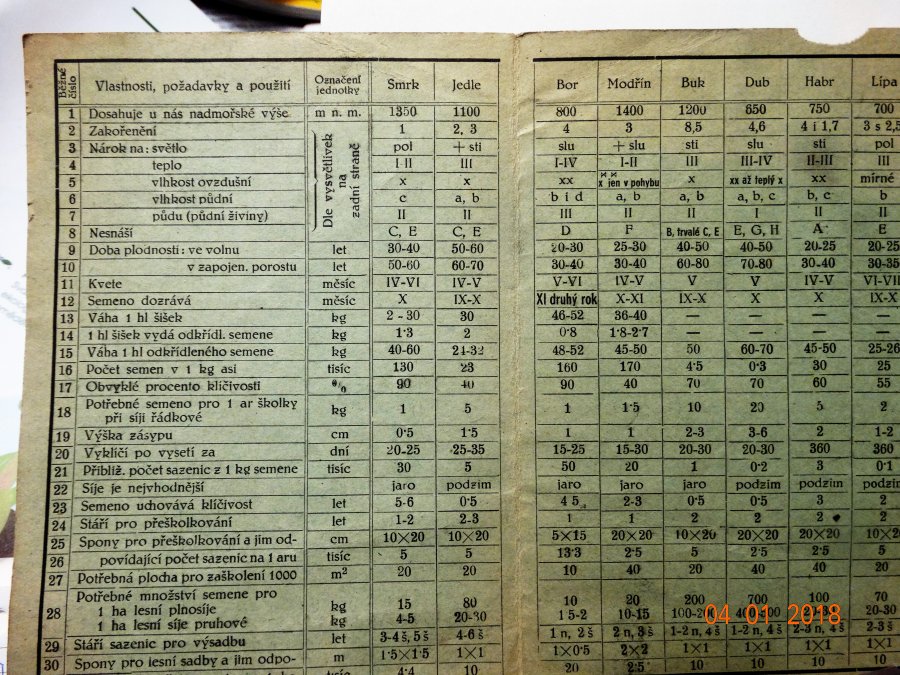 Běžné číslo Vlastnosti, požadavky a použití Označení jednotky Smrk Jedle Bor Modřín Buk Dub Habr Lípa
1 Dosahuje u nás nadmořské výše m n. m. 1350 1100 800 1400 1200 850 750 700
2 Zakořenění 1 2, 3 4 3 8,5 4,6 4 i 1,7
3 Nárok na: světlo pol + sti slu + slu sti slu sti pol
4 teplo I-II III I-IV I-II III III-IV II-III III
5 vlhkost ovzdušní x x xx x jen v pohybu x xx až teplý x xx mírné
6 vlhkost půdní c a, b b i d a, b a, b a, b, c b, c b
7 půdu (půdní živiny) II II III II II I II II
Dle vysvětlivek na zadní straně
8 Nesnáší C, E C, E D F B, trvalé C, E E, G, H A E
9 Doba plodnosti: ve volnu let 30-40 50-60 20-30 25-30 40-50 40-50 20-25 20-25
10 v zapojen. porostu let 50-60 60-70 30-40 30-40 60-80 70-80 30-40 30-35
11 Kvete měsíc IV-VI IV-V V-VI IV-V V V IV-V VI-VII
12 Semeno dozrává měsíc X IX-X XI druhý rok X-XI IX-X X X IX-X
13 Váha 1 hl šišek kg 2 - 30 30 46-52 36-40 — — — —
14 1 hl šišek vydá odkřídl. semene kg 1·3 2 0·8 1·8-2·7 — — — —
15 Váha 1 hl odkřídleného semene kg 40-60 24-32 48-52 45-50 50 60-70 45-50 25-26
16 Počet semen v 1 kg asi tisíc 130 23 160 170 4·5 0·3 30 25
17 Obvyklé procento klíčivosti % 90 40 90 40 70 70 60 55
18 Potřebné semeno pro 1 ar školky
při síji řádkové kg 1 5 1 1·5 10 20 5 2
19 Výška zásypu cm 0·5 1·5 1 1 2-3 3-6 2 1-2
20 Vyklíčí po vysetí za dní 20-25 25-35 15-25 15-30 20-30 20-30 360 360
21 Přibliž. počet sazenic z 1 kg semene tisíc 30 5 50 20 1 0·2 3 0·1
22 Síje je nejvhodnější jaro podzim jaro jaro jaro podzim podzim podzim
23 Semeno uchovává klíčivost let 5-6 0·5 4 5 2-3 0·5 0·5 3 2
24 Stáří pro přeškolkování let 1-2 2-3 1 1 2 2 2 2
25 Spony pro přeškolkování a jim od- cm 10×20 10×20 5×15 20×20 10×20 20×20 20×20 10×20
26 povídající počet sazenic na 1 aru tisíc 5 5 13·3 2·5 5 2·5 2·5 5
27 Potřebná plocha pro zaškolení 1000 m² 20 20 10 40 20 40 40 20
28 Potřebné množství semene pro
1 ha lesní plnosíje kg 15 80 10 20 200 700 100 70
1 ha lesní síje pruhové kg 4-5 20-30 1 5-2 10-15 20-30
29 Stáří sazenic pro výsadbu let 3-4 š, 5 š 4-6 š 1 n, 2 š 2 n, 3 š 1-2 n, 4 š 1-2 n, 4 š 2-3 n, 4 š 2-3 š
30 Spony pro lesní sadby a jim odpo- m 1·5×1·5 1×1 1×0·5 2×2 1×1 1×1 1×1 1×1
tisíc 4·4 10 20 2·5 10 10 10 10
04 01 2018